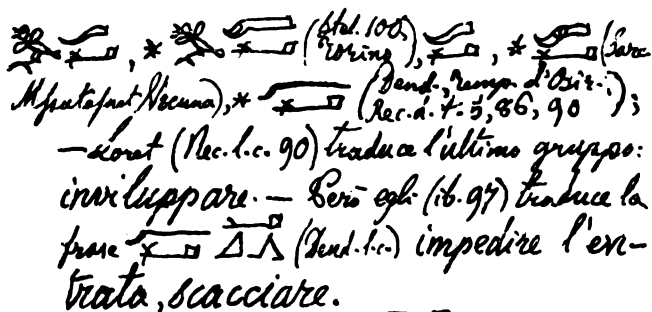 , * (Stel. 100, Torino), , * (Sarc.
Mfuntafunt, Vienna), * (Dend., Temp. d'Osir.; Rec. d. t. 5, 86, 90);
—Loret (Rec. l. c. 90) traduce l'ultimo gruppo:
inviluppare. — Però egli (ib. 97) traduce la
frase (Dend. l. c.) impedire l'en-
trata, scacciare.